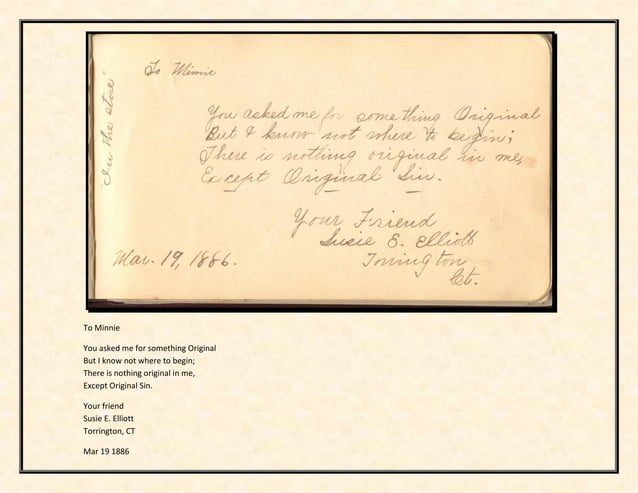 "In the store"
To Minnie
You asked me for something Original
But I know not where to begin;
There is nothing original in me,
Except Original Sin.
Your Friend
Susie E. Elliott
Mar. 19, 1886.
Torrington
Ct.
To Minnie
You asked me for something Original
But I know not where to begin;
There is nothing original in me,
Except Original Sin.
Your friend
Susie E. Elliott
Torrington, CT
Mar 19 1886